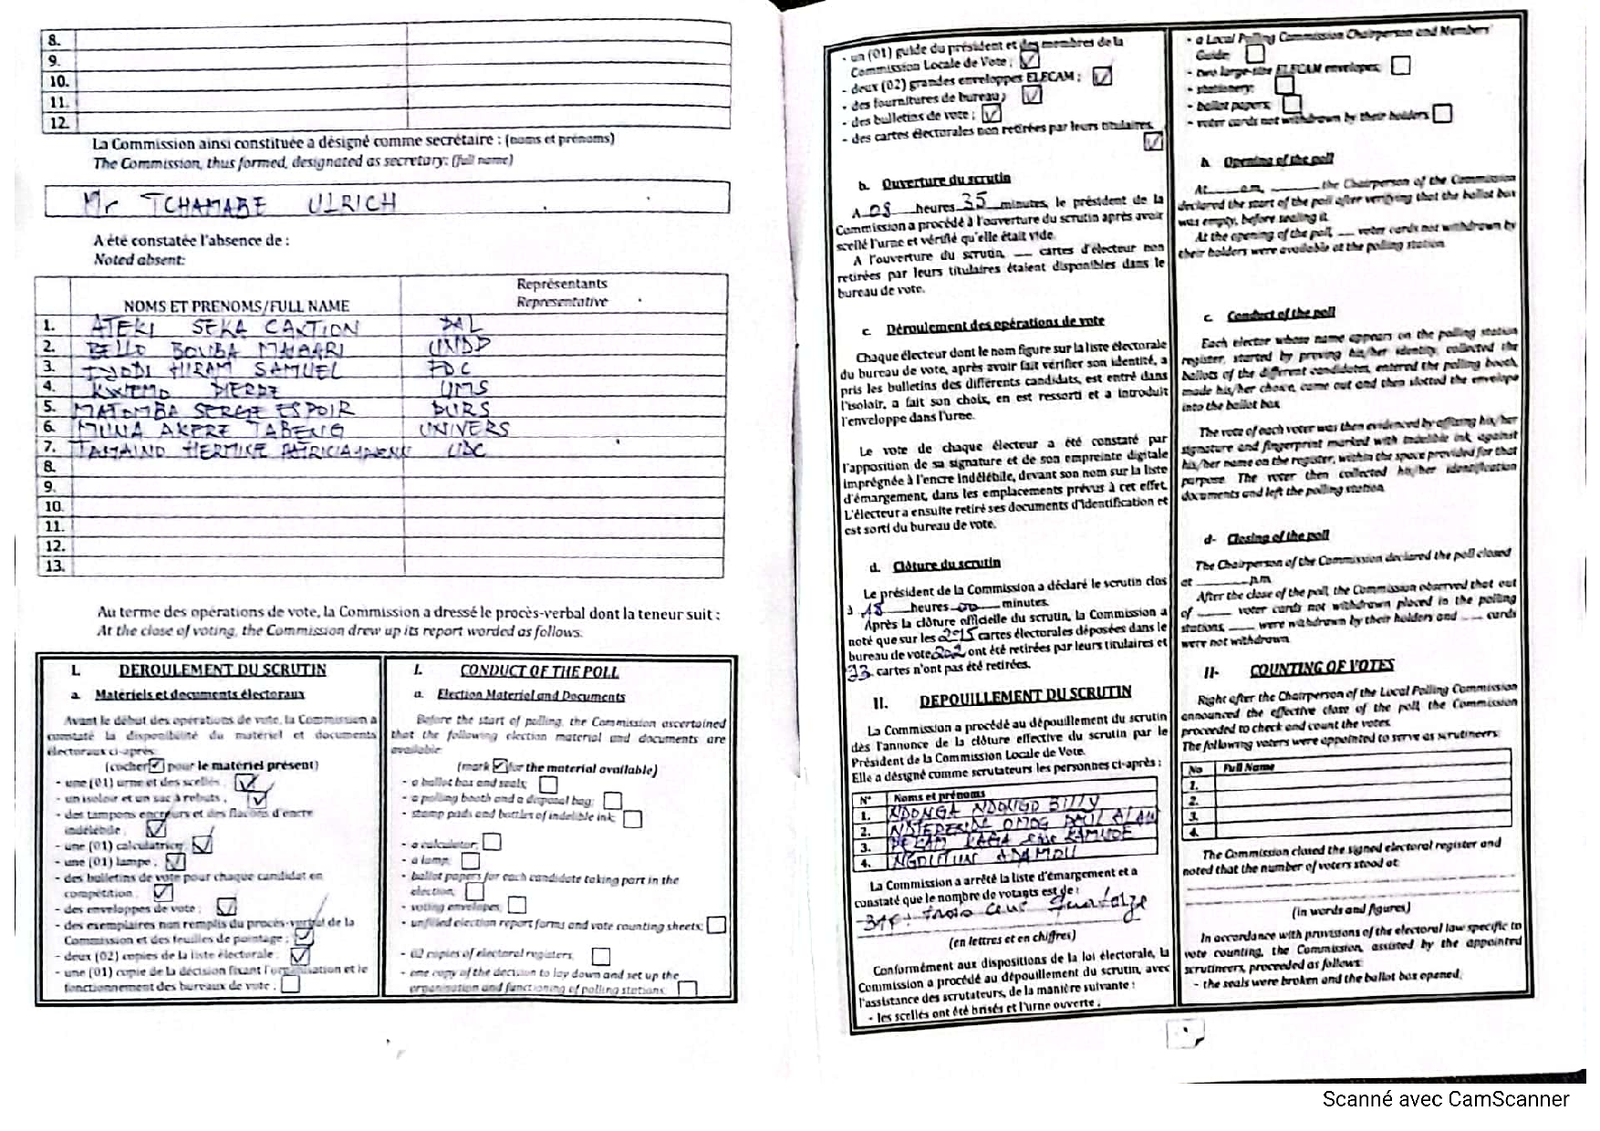 8.
9.
10.
11.
12.
La Commission ainsi constituée a désigné comme secrétaire : (noms et prénoms)
The Commission, thus formed, designated as secretary: (full name)
Mr TCHAMABE ULRICH
A été constatée l'absence de :
Noted absent:
NOMS ET PRENOMS/FULL NAME
Représentants
Representative
1. ATEKI SEKA CAXTION PAL
2. BELLO BOUBA MAIGARI UNDP
3. IYODI HIRAM SAMUEL FDC
4. KWEMO PIERRE UMS
5. MATOMBA SERGE ESPOIR PURS
6. MUNA AKERE TABENG UNIVERS
7. TAMAINO HERMINE PATRICIA UDC
8.
9.
10.
11.
12.
13.
Au terme des opérations de vote, la Commission a dressé le procès-verbal dont la teneur suit :
At the close of voting, the Commission drew up its report worded as follows.
I. DEROULEMENT DU SCRUTIN
a. Matériels et documents électoraux
Avant le début des opérations de vote, la Commission a
constaté la disponibilité du matériel et documents
électoraux ci-après:
(cocher ✓ pour le matériel présent)
- une (01) urne et des scellés
- un isoloir et un sac à rebuts,
- des tampons encreurs et des flacons d'encre
indélébile ;
- une (01) calculatrice;
- une (01) lampe ;
- des bulletins de vote pour chaque candidat en
compétition ;
- des enveloppes de vote ;
- des exemplaires non remplis du procès-verbal de la
Commission et des feuilles de pointage ;
- deux (02) copies de la liste électorale ;
- une (01) copie de la décision fixant l'organisation et le
fonctionnement des bureaux de vote ;
I. CONDUCT OF THE POLL
a. Election Material and Documents
Before the start of polling, the Commission ascertained
that the following election material and documents are
available:
(mark ✓ for the material available)
- a ballot box and seals;
- a polling booth and a disposal bag;
- stamp pads and bottles of indelible ink;
- a calculator;
- a lamp;
- ballot papers for each candidate taking part in the
election;
- voting envelopes;
- unfilled election report forms and vote counting sheets;
- 02 copies of electoral registers;
- one copy of the decision to lay down and set up the
organisation and functioning of polling stations.
- un (01) guide du président et des membres de la
Commission Locale de Vote ;
- deux (02) grandes enveloppes ELECAM ;
- des fournitures de bureau ;
- des bulletins de vote ;
- des cartes électorales non retirées par leurs titulaires.
b. Ouverture du scrutin
A 08 heures 35 minutes, le président de la
Commission a procédé à l'ouverture du scrutin après avoir
scellé l'urne et vérifié qu'elle était vide.
A l'ouverture du scrutin, __ cartes d'électeur non
retirées par leurs titulaires étaient disponibles dans le
bureau de vote.
c. Déroulement des opérations de vote
Chaque électeur dont le nom figure sur la liste électorale
du bureau de vote, après avoir fait vérifier son identité, a
pris les bulletins des différents candidats, est entré dans
l'isoloir, a fait son choix, en est ressorti et a introduit
l'enveloppe dans l'urne.
Le vote de chaque électeur a été constaté par
l'apposition de sa signature et de son empreinte digitale
imprégnée à l'encre indélébile, devant son nom sur la liste
d'émargement, dans les emplacements prévus à cet effet.
L'électeur a ensuite retiré ses documents d'identification et
est sorti du bureau de vote.
d. Clôture du scrutin
Le président de la Commission a déclaré le scrutin clos
à 18 heures 00 minutes.
Après la clôture officielle du scrutin, la Commission a
noté que sur les cartes électorales déposées dans le
bureau de vote 202 ont été retirées par leurs titulaires et
33 cartes n'ont pas été retirées.
II. DEPOUILLEMENT DU SCRUTIN
La Commission a procédé au dépouillement du scrutin
dès l'annonce de la clôture effective du scrutin par le
Président de la Commission Locale de Vote.
Elle a désigné comme scrutateurs les personnes ci-après :
N° Noms et prénoms
1. NDONGA NDONGO BILLY
2. OMOG PAUL ALAIN
3.
4. ADAMOU
La Commission a arrêté la liste d'émargement et a
constaté que le nombre de votants est de :
314 : trois cent quatorze
(en lettres et en chiffres)
Conformément aux dispositions de la loi électorale, la
Commission a procédé au dépouillement du scrutin, avec
l'assistance des scrutateurs, de la manière suivante :
- les scellés ont été brisés et l'urne ouverte ;
- a Local Polling Commission Chairperson and Members'
Guide;
- two large-size ELECAM envelopes;
- stationery;
- ballot papers;
- voter cards not withdrawn by their holders
b. Opening of the poll
At____a.m, ____ the Chairperson of the Commission
declared the start of the poll after verifying that the ballot box
was empty, before sealing it.
At the opening of the poll, __ voter cards not withdrawn by
their holders were available at the polling station.
c. Conduct of the poll
Each elector whose name appears on the polling station
register, started by proving his/her identity, collected the
ballots of the different candidates, entered the polling booth,
made his/her choice, came out and then slotted the envelope
into the ballot box.
The vote of each voter was then evidenced by affixing his/her
signature and fingerprint marked with indelible ink, against
his/her name on the register, within the space provided for that
purpose. The voter then collected his/her identification
documents and left the polling station.
d- Closing of the poll
The Chairperson of the Commission declared the poll closed
at ______ p.m.
After the close of the poll, the Commission observed that out
of ____ voter cards not withdrawn placed in the polling
stations, ___ were withdrawn by their holders and ___ cards
were not withdrawn.
II- COUNTING OF VOTES
Right after the Chairperson of the Local Polling Commission
announced the effective close of the poll, the Commission
proceeded to check and count the votes.
The following voters were appointed to serve as scrutineers:
No Full Name
1.
2.
3.
4.
The Commission closed the signed electoral register and
noted that the number of voters stood at:
(in words and figures)
In accordance with provisions of the electoral law specific to
vote counting, the Commission, assisted by the appointed
scrutineers, proceeded as follows:
- the seals were broken and the ballot box opened;
Scanné avec CamScanner